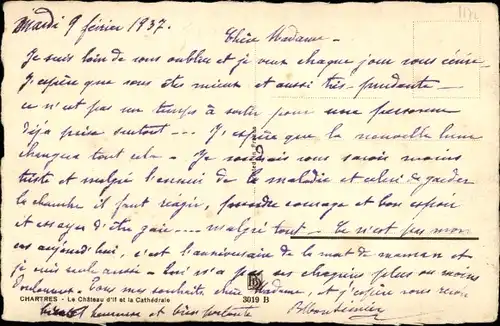 Mardi 9 février 1937.
Chère Madame -
Je suis loin de vous oublier et je veux chaque jour vous écrire.
J'espère que vous êtes mieux et aussi très prudente -
ce n'est pas un temps à sortir pour une personne
déjà prise surtout --- J'espère que la nouvelle lune
changera tout cela - Je voudrais vous savoir moins
triste et malgré l'ennui de la maladie et celui de garder
la chambre il faut réagir, prendre courage et bon espoir
et essayer d'être gaie --- malgré tout - Ce n'est pas mon
cas aujourd'hui, c'est l'anniversaire de la mort de maman et
je suis seule aussi - Qui n'a pas ses chagrins plus ou moins
douloureux - Tous mes souhaits, chère Madame, et j'espère vous revoir
bientôt heureuse et bien portante
CHARTRES - Le Château d'If et la Cathédrale
3019 B